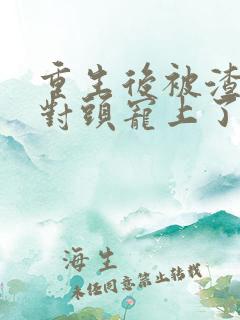 重生後被渣
對頭寵上了
海生
未任同意禁止轉載